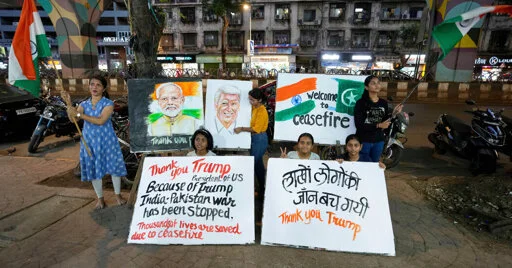 Thank you
Welcome to
Ceasefire
Thank you Trump
President of U.S
Because of Trump
India-Pakistan war
has been stopped.
Thousands of lives are saved
due to ceasefire
लाखों लोगोंकी
जान बच गयी
Thank you Trump